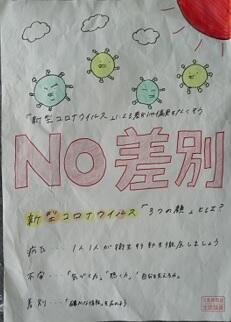 「新型コロナウイルス」による差別や偏見をなくそう
NO差別
新型コロナウイルス「3つの顔」とは?
病気・・・1人1人が衛生行動を徹底しましょう
不安・・・「気づく力」「聴く力」「自分を支える力」
差別・・・「確かな情報」を広めよう